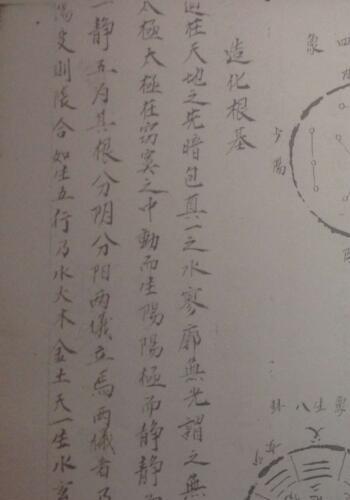 造化根基
道在天地之先暗包真一之水寥廓無光謂之無
太極太極在窈冥之中動而生陽陽極而静静而
一静互为其根分阴分阳两儀立焉两儀者乃
陽变则陰合如生五行乃水火木金土天一生水
四
象
少陽